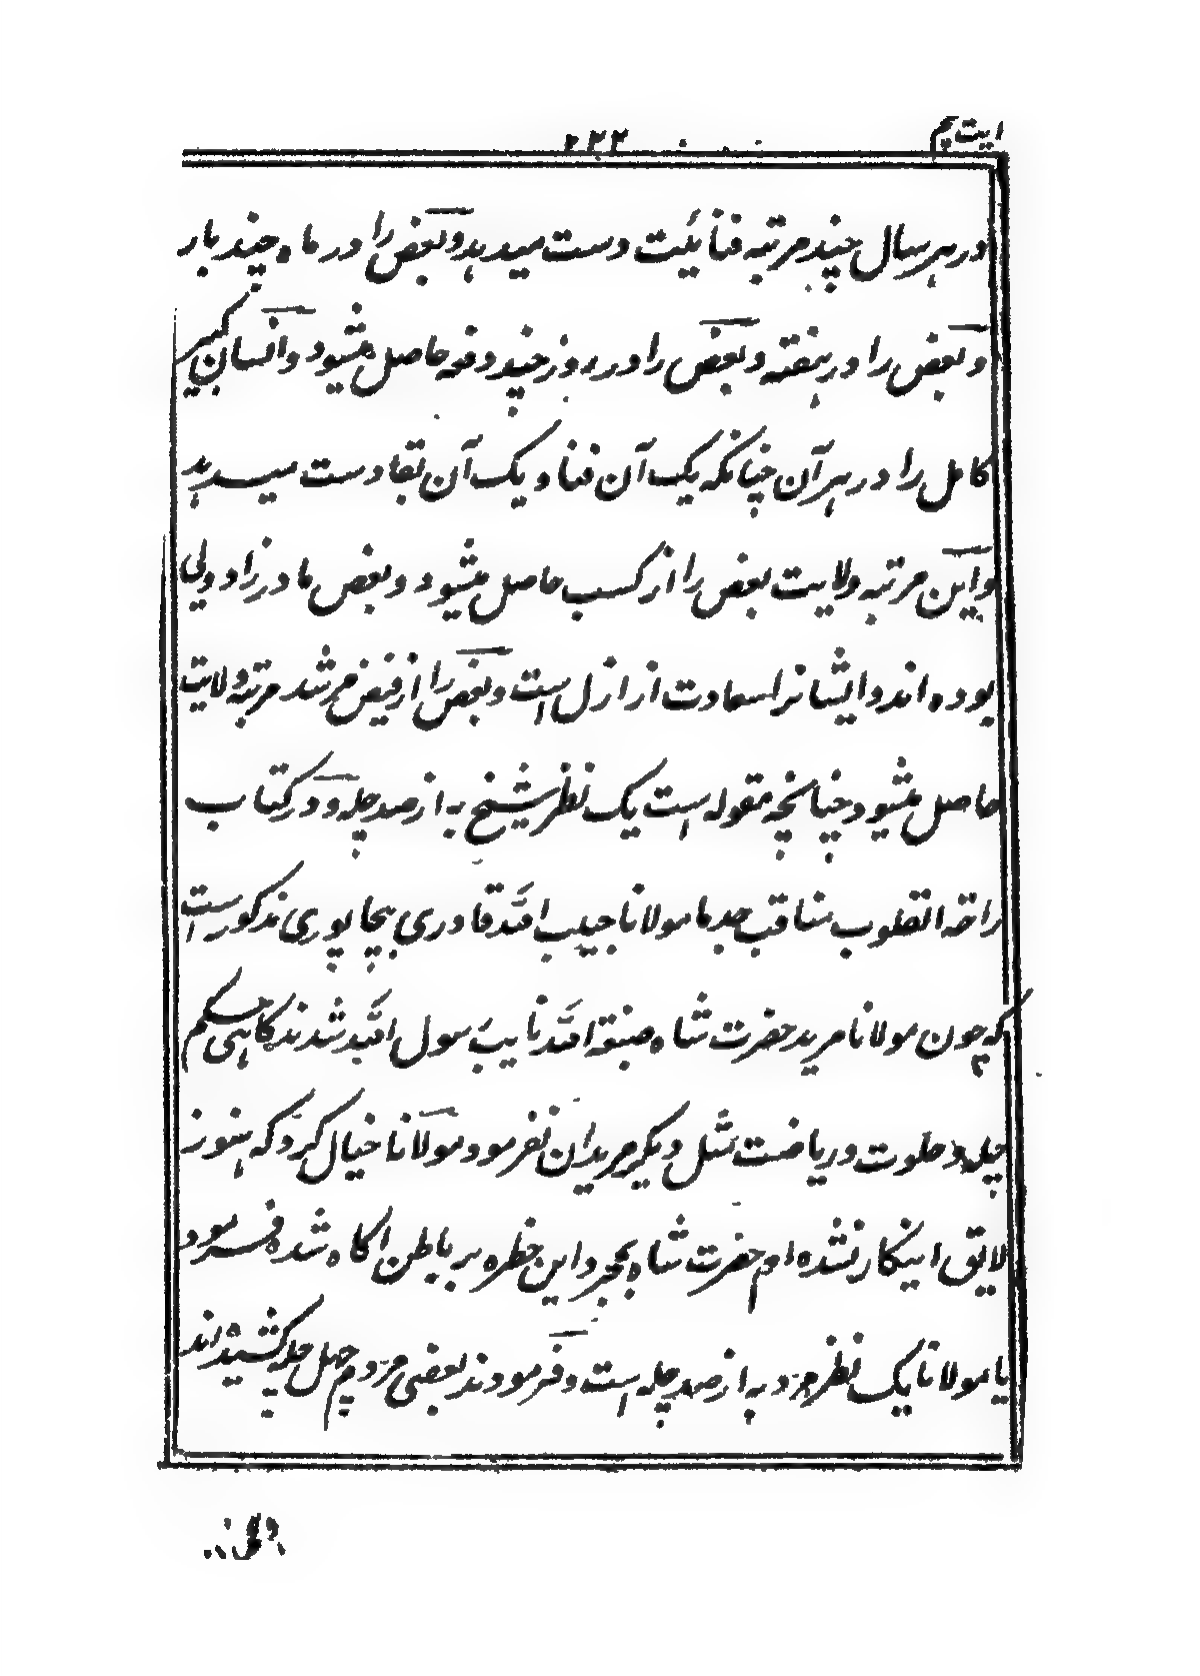 ۲۳۲
در هر سال چند مرتبه فنائیت دست میدهد و بعض را در ماه چند بار
و بعض را در هفته و بعض را در روز چند دفعه حاصل میشود و انسان کبیر
کامل را در هر آن چنانکه یک آن فنا و یک آن بقا دست میدهد
و این مرتبه ولایت بعض را از کسب حاصل میشود و بعض مادر زاد ولی
بوده اند و ایشانرا سعادت از ازل است و بعض را از فیض مرشد مرتبه ولایت
حاصل میشود چنانچه مقوله است یک نظر شیخ به از صد چله و در کتاب
راحة القلوب مناقب جد ما مولانا حبیب الله قادری بیجاپوری مذکور است
که چون مولانا مرید حضرت شاه صبغة الله نایب رسول الله شدند گاهی حکم
چله و خلوت و ریاضت مثل دیگر مریدان نفرمود مولانا خیال کرد که هنوز
لایق اینکار نشده ام حضرت شاه بمجرد این خطره بر باطن آگاه شده فرمود
یا مولانا یک نظر مرد به از صد چله است و فرمودند بعضی مردم چهل چله کشیده اند